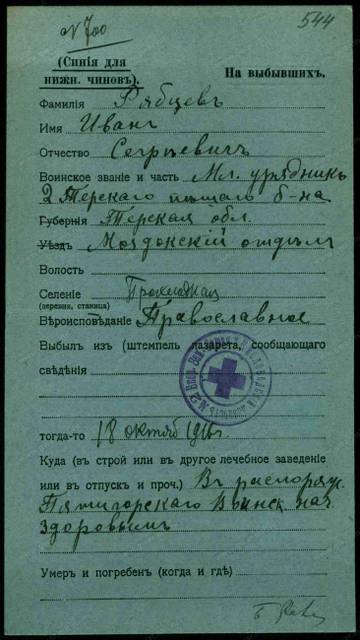 № 700
544
(Синія для
нижн. чиновъ).
На выбывшихъ.
Фамилія Рябцевъ
Имя Иванъ
Отчество Сергѣевичъ
Воинское званіе и часть Мл. урядникъ
2 Терскаго б-на
Губернія Терская обл.
Уѣздъ Моздокскій отдѣлъ
Волость
Селеніе Прохладная
(деревня, станица)
Вѣроисповѣданіе Православное
Выбылъ изъ (штемпель лазарета, сообщающаго
свѣдѣнія
тогда-то 18 октяб 1916 г.
Куда (въ строй или въ другое лечебное заведеніе
или въ отпускъ и проч.) Въ распоряж.
Пятигорскаго Воинск. нач.
здоровымъ
Умеръ и погребенъ (когда и гдѣ)